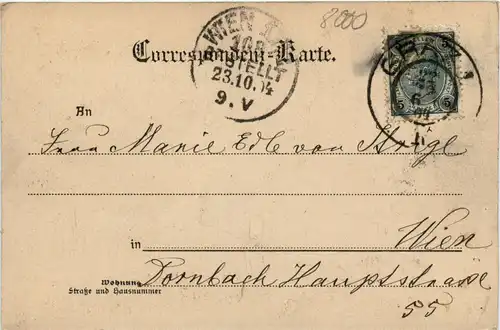 8000
WIEN
BESTELLT
23.10.04
9.V
GRAZ 1
5 5
Correspondenz-Karte.
An
Frau Marie Edle von
in Wien
Wohnung Dornbach Hauptstrasse
Straße und Hausnummer
55